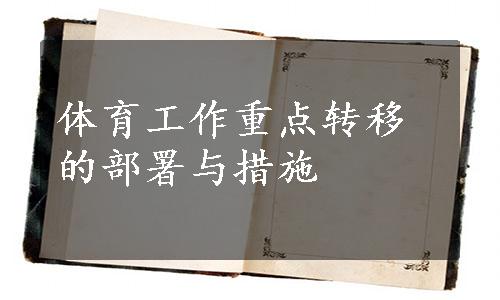 体育工作重点转移
的部署与措施